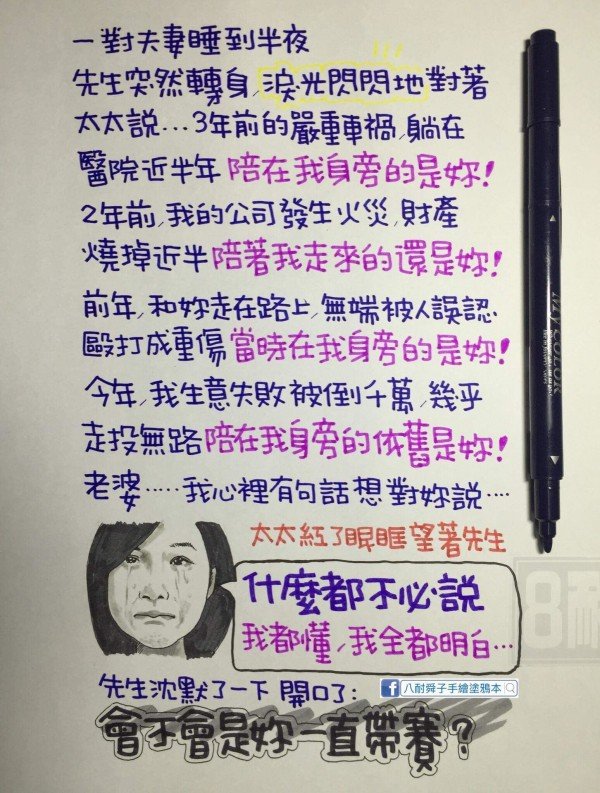 一對夫妻睡到半夜
先生突然轉身,淚光閃閃地對著
太太說...3年前的嚴重車禍,躺在
醫院近半年陪在我身旁的是妳!
2年前,我的公司發生火災,財產
燒掉近半陪著我走來的還是妳!
前年,和妳走在路上,無端被人誤認
毆打成重傷當時在我身旁的是妳!
今年,我生意失敗被倒千萬,幾乎
走投無路陪在我身旁的依舊是妳!
老婆.....我心裡有句話想對妳說....
太太紅了眼眶望著先生
什麼都不必說
我都懂,我全都明白...
先生沈默了一下 開口了:
f 八耐舜子手繪塗鴉本
會不會是妳一直帶賽?
MY COLOR
8耐